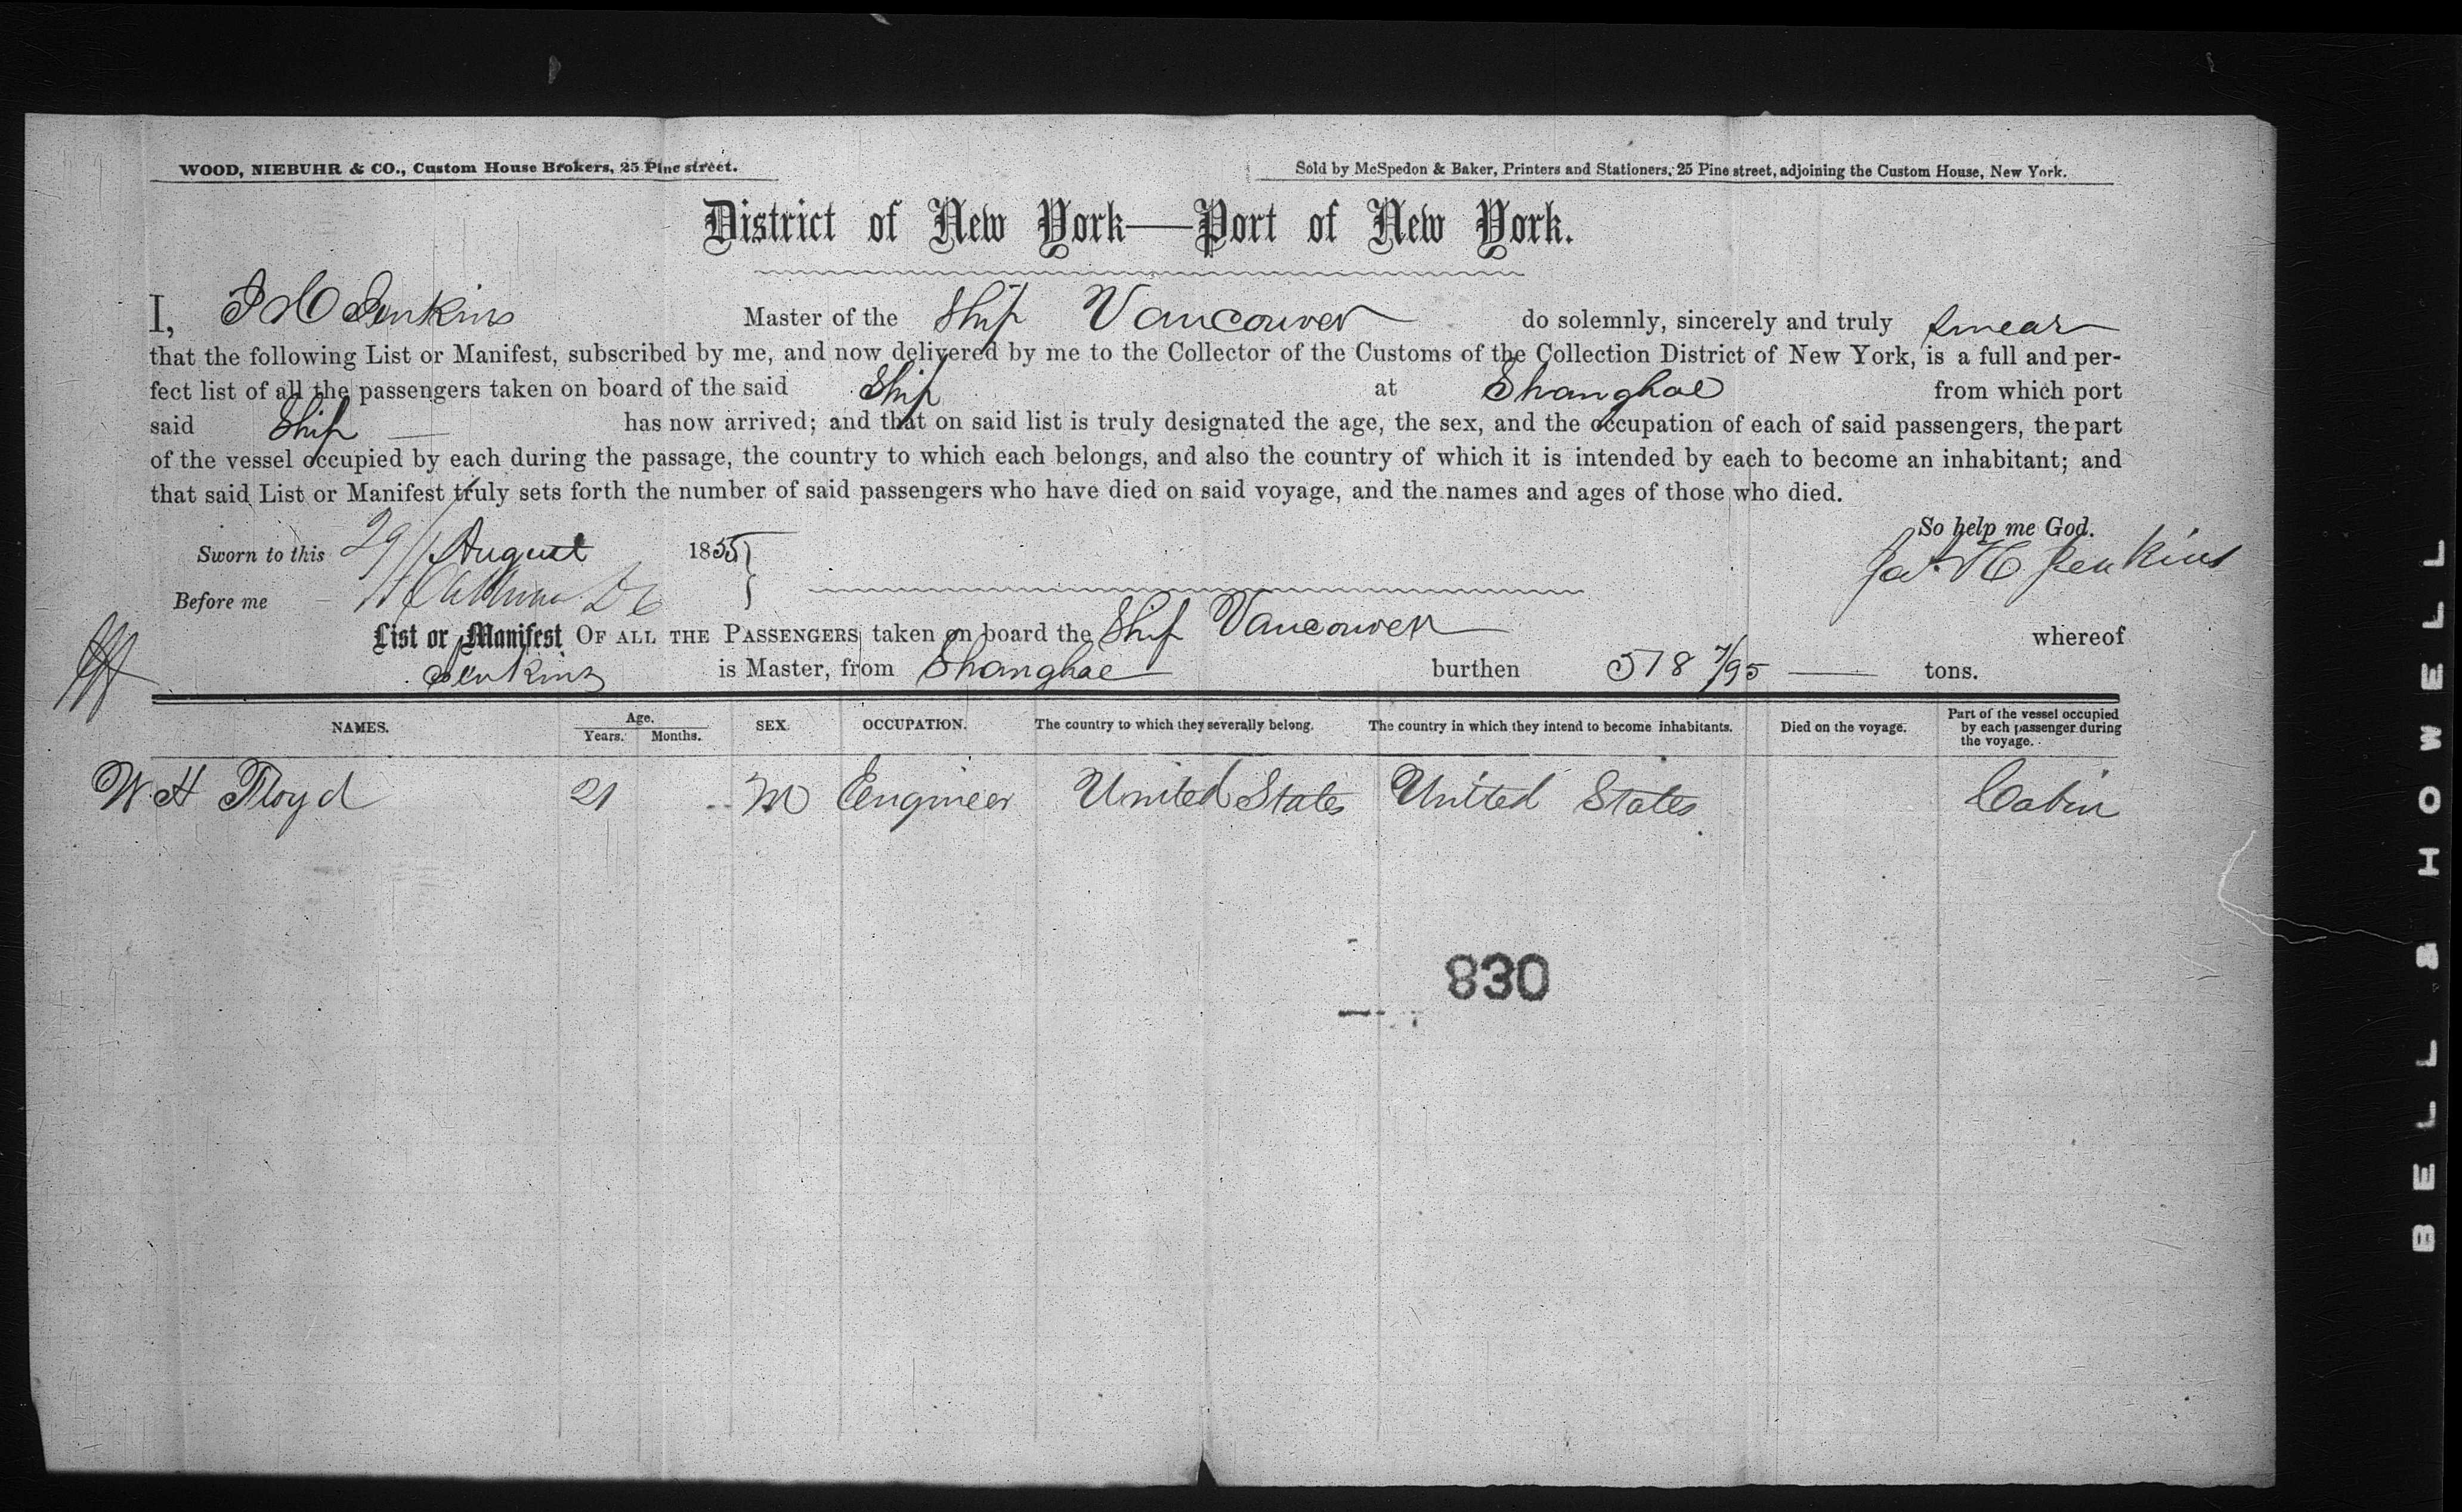 WOOD, NIEBUHR & CO., Custom House Brokers, 25 Pine street.
Sold by McSpedon & Baker, Printers and Stationers, 25 Pine street, adjoining the Custom House, New York.
District of New York—Port of New York.
I, J H Jenkins Master of the Ship Vancouver do solemnly, sincerely and truly swear
that the following List or Manifest, subscribed by me, and now delivered by me to the Collector of the Customs of the Collection District of New York, is a full and per-
fect list of all the passengers taken on board of the said Ship at Shanghae from which port
said Ship has now arrived; and that on said list is truly designated the age, the sex, and the occupation of each of said passengers, the part
of the vessel occupied by each during the passage, the country to which each belongs, and also the country of which it is intended by each to become an inhabitant; and
that said List or Manifest truly sets forth the number of said passengers who have died on said voyage, and the names and ages of those who died.
So help me God.
Sworn to this 29 August 1855
Jas. H Jenkins
Before me
List or Manifest OF ALL THE PASSENGERS taken on board the Ship Vancouver whereof
Jenkins is Master, from Shanghae burthen 578 7/95 tons.
NAMES. Age. Years. Months. SEX. OCCUPATION. The country to which they severally belong. The country in which they intend to become inhabitants. Died on the voyage. Part of the vessel occupied by each passenger during the voyage.
W. H Floyd 21 M Engineer United States United States Cabin
830
BELL & HOWELL